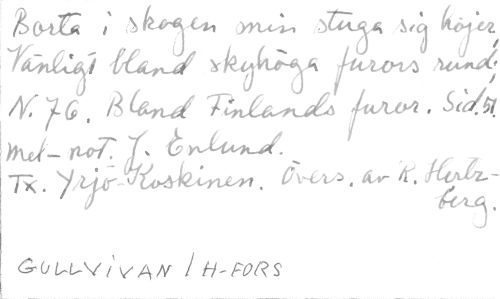 Borta i skogen min stuga sig höjer,
Vänligt bland skyhöga furors rund;
N. 76. Bland Finlands furor. Sid. 51.
mel-not. J. Enlund.
Tx. Yrjö-Koskinen. Övers. av R. Hertz-
berg.
GULLVIVAN / H-FORS